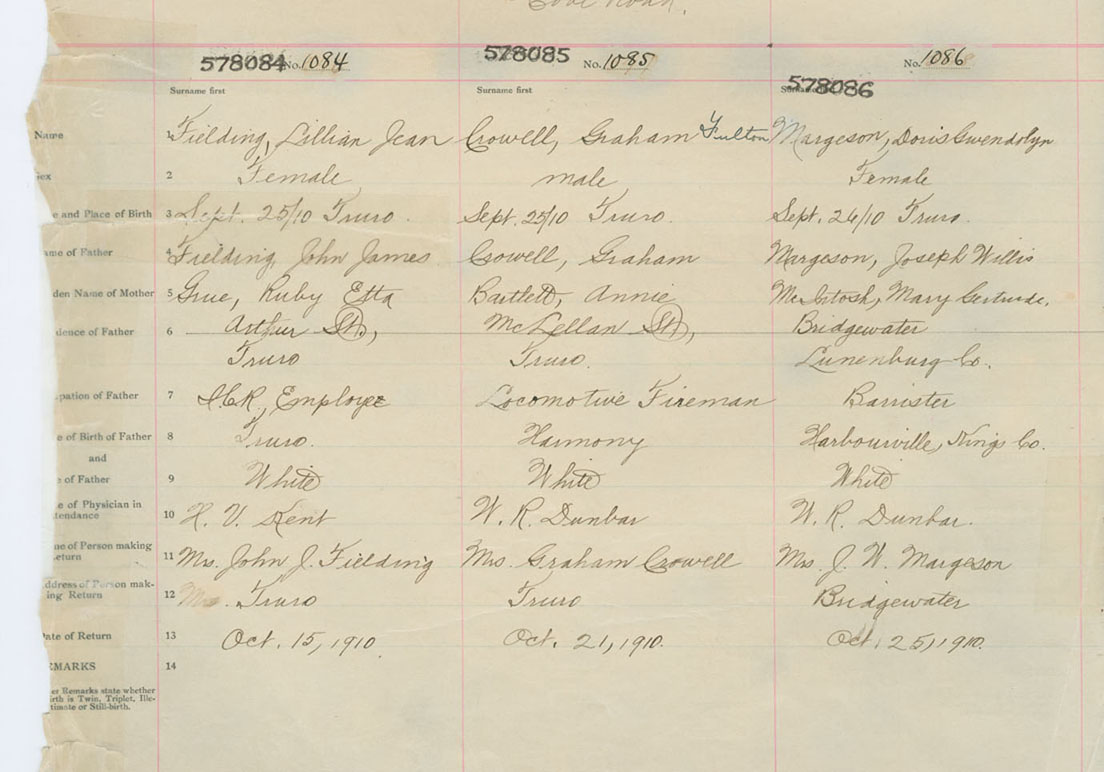 Cove Road.
578084 No. 1084
578085 No. 1085
No. 1086
578086
Surname first
Surname first
Name 1 Fielding, Lillian Jean Crowell, Graham Fulton Margeson, Doris Gwendolyn
ex 2 Female male Female
e and Place of Birth 3 Sept. 25/10 Truro. Sept. 25/10 Truro. Sept. 26/10 Truro.
ame of Father 4 Fielding, John James Crowell, Graham Margeson, Joseph Willis
den Name of Mother 5 Grue, Ruby Etta Bartlett, Annie McIntosh, Mary Gertrude.
dence of Father 6 Arthur St., McLellan St., Bridgewater
Truro Truro. Lunenburg Co.
pation of Father 7 I.C.R. Employee Locomotive Fireman Barrister
e of Birth of Father 8 Truro. Harmony Harbourville, Kings Co.
and
e of Father 9 White White White
e of Physician in
ttendance 10 H. V. Kent W. R. Dunbar W. R. Dunbar.
me of Person making
eturn 11 Mrs. John J. Fielding Mrs. Graham Crowell Mrs. J. W. Margeson
ddress of Person mak-
ing Return 12 Truro Truro Bridgewater
Date of Return 13 Oct. 15, 1910 Oct. 21, 1910. Oct. 25, 1910.
EMARKS 14
er Remarks state whether
irth is Twin, Triplet, Ille-
timate or Still-birth.